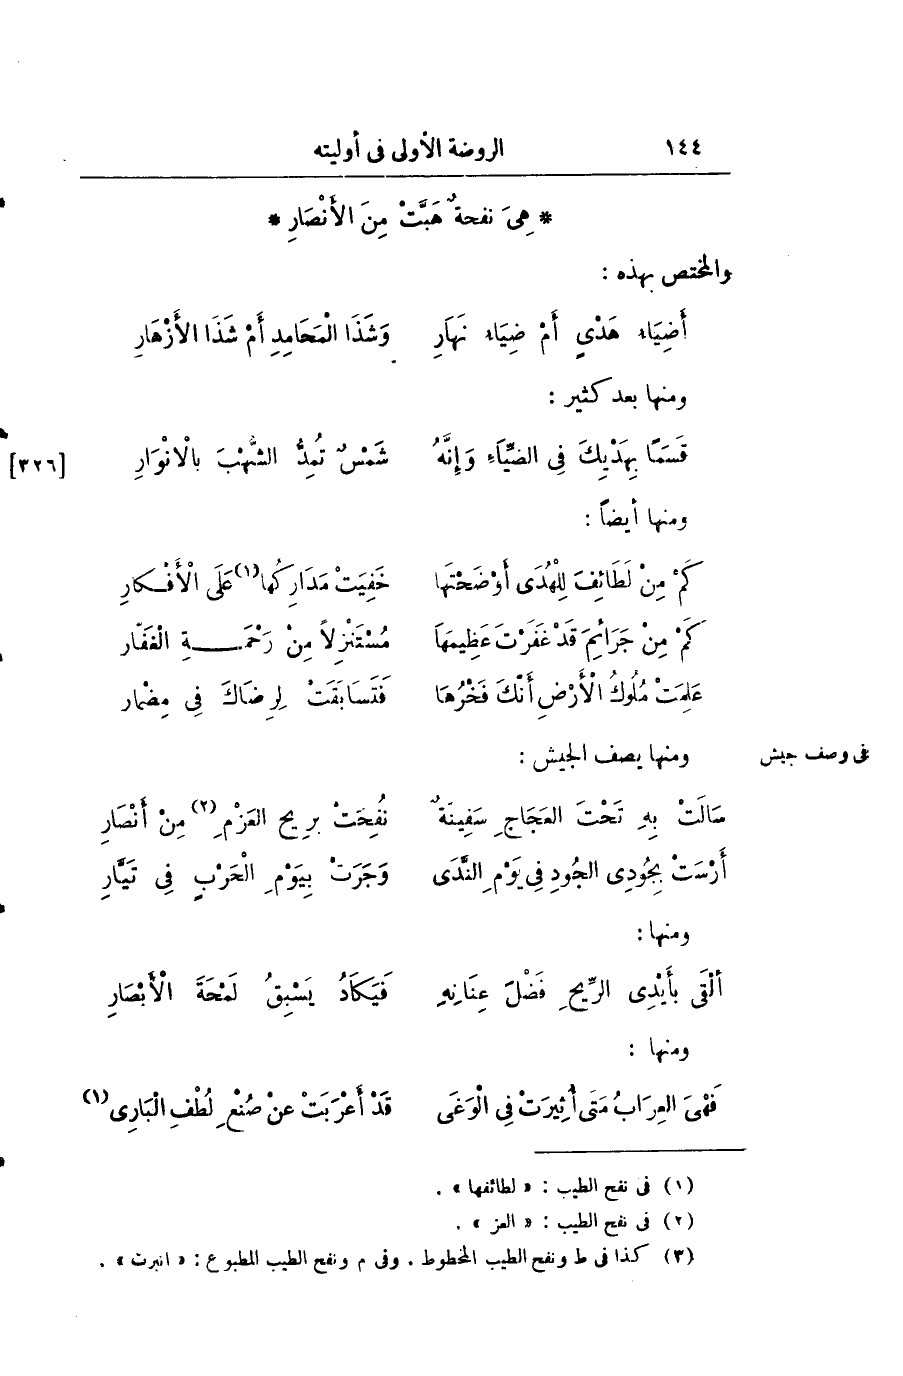 ١٤٤ الروضة الأولى فى أوليته
* هِىَ نفحةٌ هَبَّتْ مِنَ الأَنْصَارِ *
والمختص بهذه :
أَضِيَاء هَدْىٍ أَمْ ضِيَاء نَهَارِ وَشَذَا الْمَحَامِدِ أَمْ شَذَا الأَزْهَارِ
ومنها بعد كثير :
قَسَمًا بِهَدْيِكَ فِى الضِّيَاءِ وَإِنَّهُ شَمْسٌ تُمِدُّ الشُّهْبَ بالْانْوَارِ [٣٢٦]
ومنها أيضاً :
كَمْ مِنْ لَطَائِفَ لِلْهُدَى أَوْضَحْتَهَا خَفِيَتْ مَدَارِكُها(١) عَلَى الْأَفْكارِ
كَمْ مِنْ جَرَائِمَ قَدْ غَفَرْتَ عَظِيمَهَا مُسْتَنْزِلاً مِنْ رَحْمَـــةِ الْغَفّار
عَلِمَتْ مُلُوكُ الْأَرْضِ أَنْكَ فَخْرُهَا فَتَسَابَقَتْ لِرِضَاكَ فِى مِضْمار
ومنها يصف الجيش : فى وصف جيش
سَالَتْ بِهِ تَحْتَ العَجَاجِ سَفِينَةٌ نُفِحَتْ بريحِ العَزْمِ(٢) مِنْ أَنْصَارِ
أَرْسَتْ بِجُودِى الجُودِ فِى يَوْمِ النَّدَى وَجَرَتْ بِيَوْمِ الْحَرْبِ فِى تَيَّارِ
ومنها :
ألْقَى بأَيْدِى الرِّيحِ فَضْلَ عِنَانِهِ فَيَكَادُ يَسْبِقُ لَمْحَةَ الْأَبْصَارِ
ومنها :
فَهْىَ العِرَابُ مَتَى أُثِيرَتْ فِى الْوَغَى قَدْ أَعْرَبَتْ عنْ صُنْعِ لُطْفِ الْبَارِى(١)
(١) فى نفح الطيب : « لطائفها » .
(٢) فى نفح الطيب : « العز » .
(٣) كذا فى ط ونفح الطيب المخطوط . وفى م ونفح الطيب المطبوع : « انبرت » .